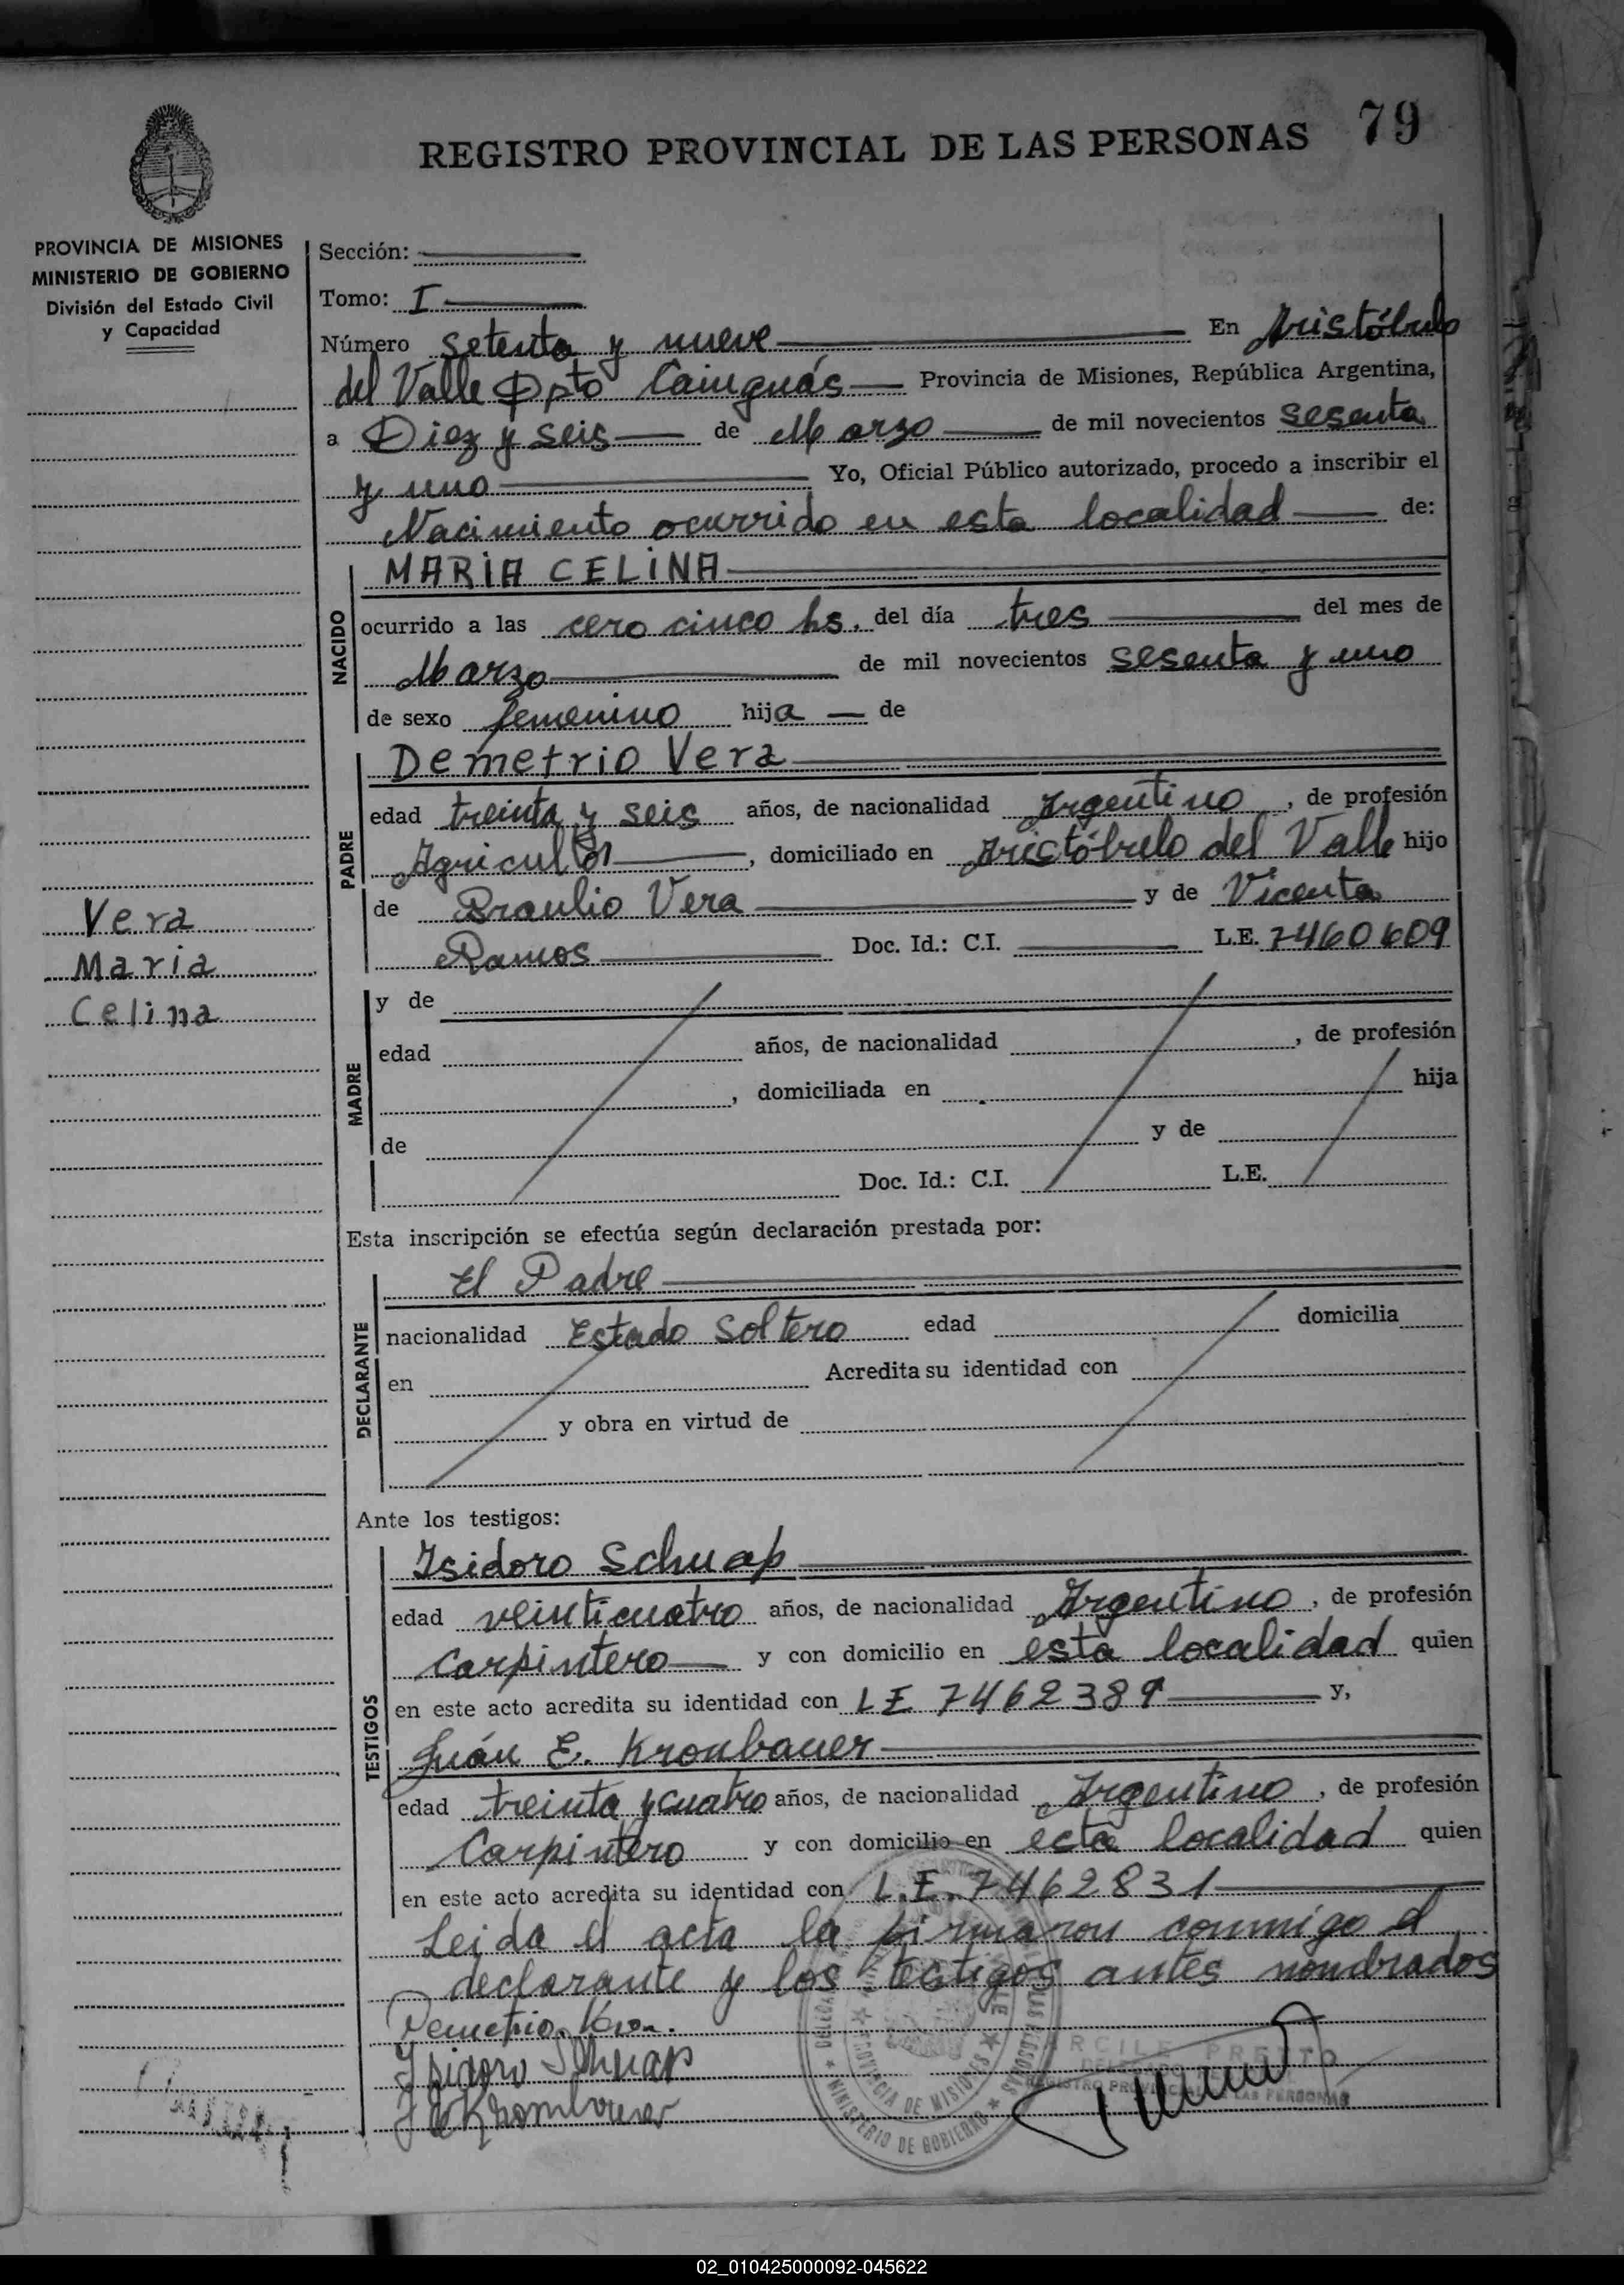 79
REGISTRO PROVINCIAL DE LAS PERSONAS
PROVINCIA DE MISIONES
MINISTERIO DE GOBIERNO
División del Estado Civil
y Capacidad
Sección:
Tomo: I
Número setenta y nueve En Aristóbulo
del Valle Dpto Cainguás Provincia de Misiones, República Argentina,
a Diez y seis de Marzo de mil novecientos sesenta
y uno Yo, Oficial Público autorizado, procedo a inscribir el
Nacimiento ocurrido en esta localidad de:
NACIDO
MARIA CELINA
ocurrido a las cero cinco hs. del día tres del mes de
Marzo de mil novecientos sesenta y uno
de sexo femenino hija de
PADRE
Demetrio Vera
edad treinta y seis años, de nacionalidad Argentino, de profesión
Agricultor, domiciliado en Aristóbulo del Valle hijo
de Braulio Vera y de Vicenta
Ramos Doc. Id.: C.I. L.E. 7460609
Vera
Maria
Celina
MADRE
y de
edad años, de nacionalidad , de profesión
, domiciliada en hija
de y de
Doc. Id.: C.I. L.E.
Esta inscripción se efectúa según declaración prestada por:
DECLARANTE
El Padre
nacionalidad Estado Soltero edad domicilia
en Acredita su identidad con
y obra en virtud de
Ante los testigos:
TESTIGOS
Isidoro Schuap
edad veinticuatro años, de nacionalidad Argentino, de profesión
Carpintero y con domicilio en esta localidad quien
en este acto acredita su identidad con LE 7462389 y,
Juán E. Kronbauer
edad treinta y cuatro años, de nacionalidad Argentino, de profesión
Carpintero y con domicilio en esta localidad quien
en este acto acredita su identidad con L.E. 7462831
Leida el acta la firmaron conmigo el
declarante y los testigos antes nombrados
Demetrio Vera.
Isidoro Schuap
PROVINCIA DE MISIONES
MINISTERIO DE GOBIERNO
02_010425000092-045622